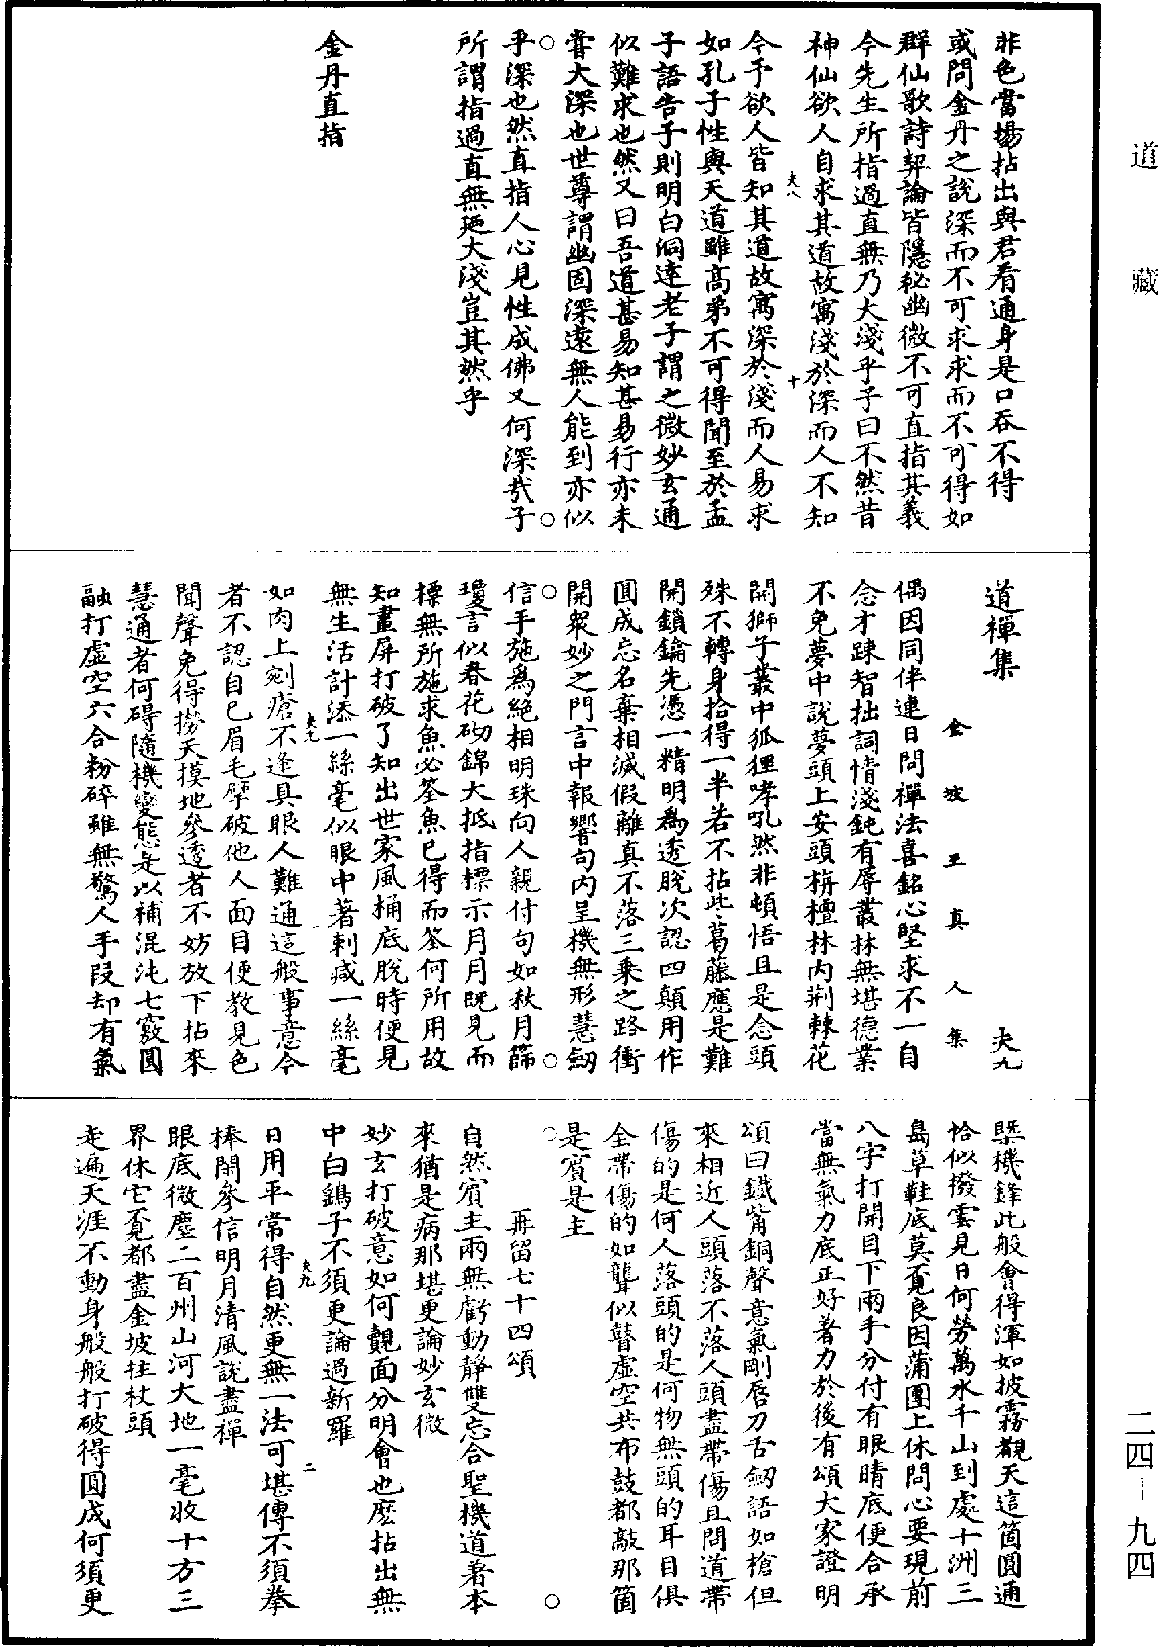 道藏
非色當場拈出與君看通身是口吞不得
或問金丹之說深而不可求求而不可得如
群仙歌詩契論皆隱秘幽微不可直指其義
今先生所指過直無乃大淺乎予曰不然昔
神仙欲人自求其道故寓淺於深而人不知
夫八
十
今予欲人皆知其道故寓深於淺而人易求
如孔子性與天道雖高弟不可得聞至於孟
子語告子則明白洞達老子謂之微妙玄通
似難求也然又曰吾道甚易知甚易行亦未
嘗大深也世尊謂幽固深遠無人能到亦似
乎深也然直指人心見性成佛又何深哉予
所謂指過直無廼大淺豈其然乎
金丹直指
道禪集
夫九
金坡王真人集
偶因同伴連日問禪法喜銘心堅求不一自
念才踈智拙詞情淺鈍有辱叢林無堪德業
不免夢中說夢頭上安頭栴檀林內荆棘花
開獅子叢中狐狸哮吼然非頓悟且是念頭
殊不轉身拾得一半若不拈此葛藤應是難
開鎖鑰先憑一精明為透脫次認四顛用作
圓成忘名棄相減假離真不落三乗之路衝
開衆妙之門言中報響句內呈機無形慧劒
信手施爲絶相明珠向人親付句如秋月篩
瓊言似春花砌錦大抵指標示月月既見而
標無所施求魚必筌魚已得而筌何所用故
知畫屏打破了知出世家風桶底脫時便見
無生活計添一絲毫似眼中著刺咸一絲毫
夫九
如肉上剜瘡不逢具眼人難通這般事意今
者不認自己眉毛擘破他人面目便教見色
聞聲免得撈天摸地參透者不妨放下拈來
慧通者何碍隨機變態是以補混沌七竅圓
融打虛空六合粉碎雖無驚人手段却有氣
槩機鋒此般會得渾如披霧觀天這箇圓通
恰似撥雲見日何勞萬水千山到處十洲三
島草鞋底莫覔良因蒲團上休問心要現前
八字打開目下兩手分付有眼睛底便合承
當無氣力底正好著力於後有頌大家證明
頌曰鐵觜銅聲意氣剛唇刀舌劒語如槍但
來相近人頭落不落人頭盡帶傷且問道帶
傷的是何人落頭的是何物無頭的耳目俱
全帶傷的如聾似瞽虛空共布鼓都敲那箇
是賓是主
再留七十四頌
自然賓主兩無虧動靜雙忘合聖機道著本
來猶是病那堪更論妙玄微
妙玄打破意如何覿面分明會也麽拈出無
中白鷂子不須更論過新羅
夫九
二
日用平常得自然更無一法可堪傳不須拳
棒閙參信明月清風說盡禪
眼底微塵二百州山河大地一毫收十方三
界休它覔都盡金坡拄杖頭
走遍天涯不動身般般打破得圓成何須更
二四-九四